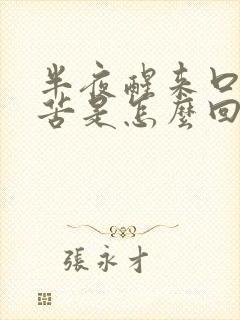 半夜醒来口
苦是怎麼回
張永才